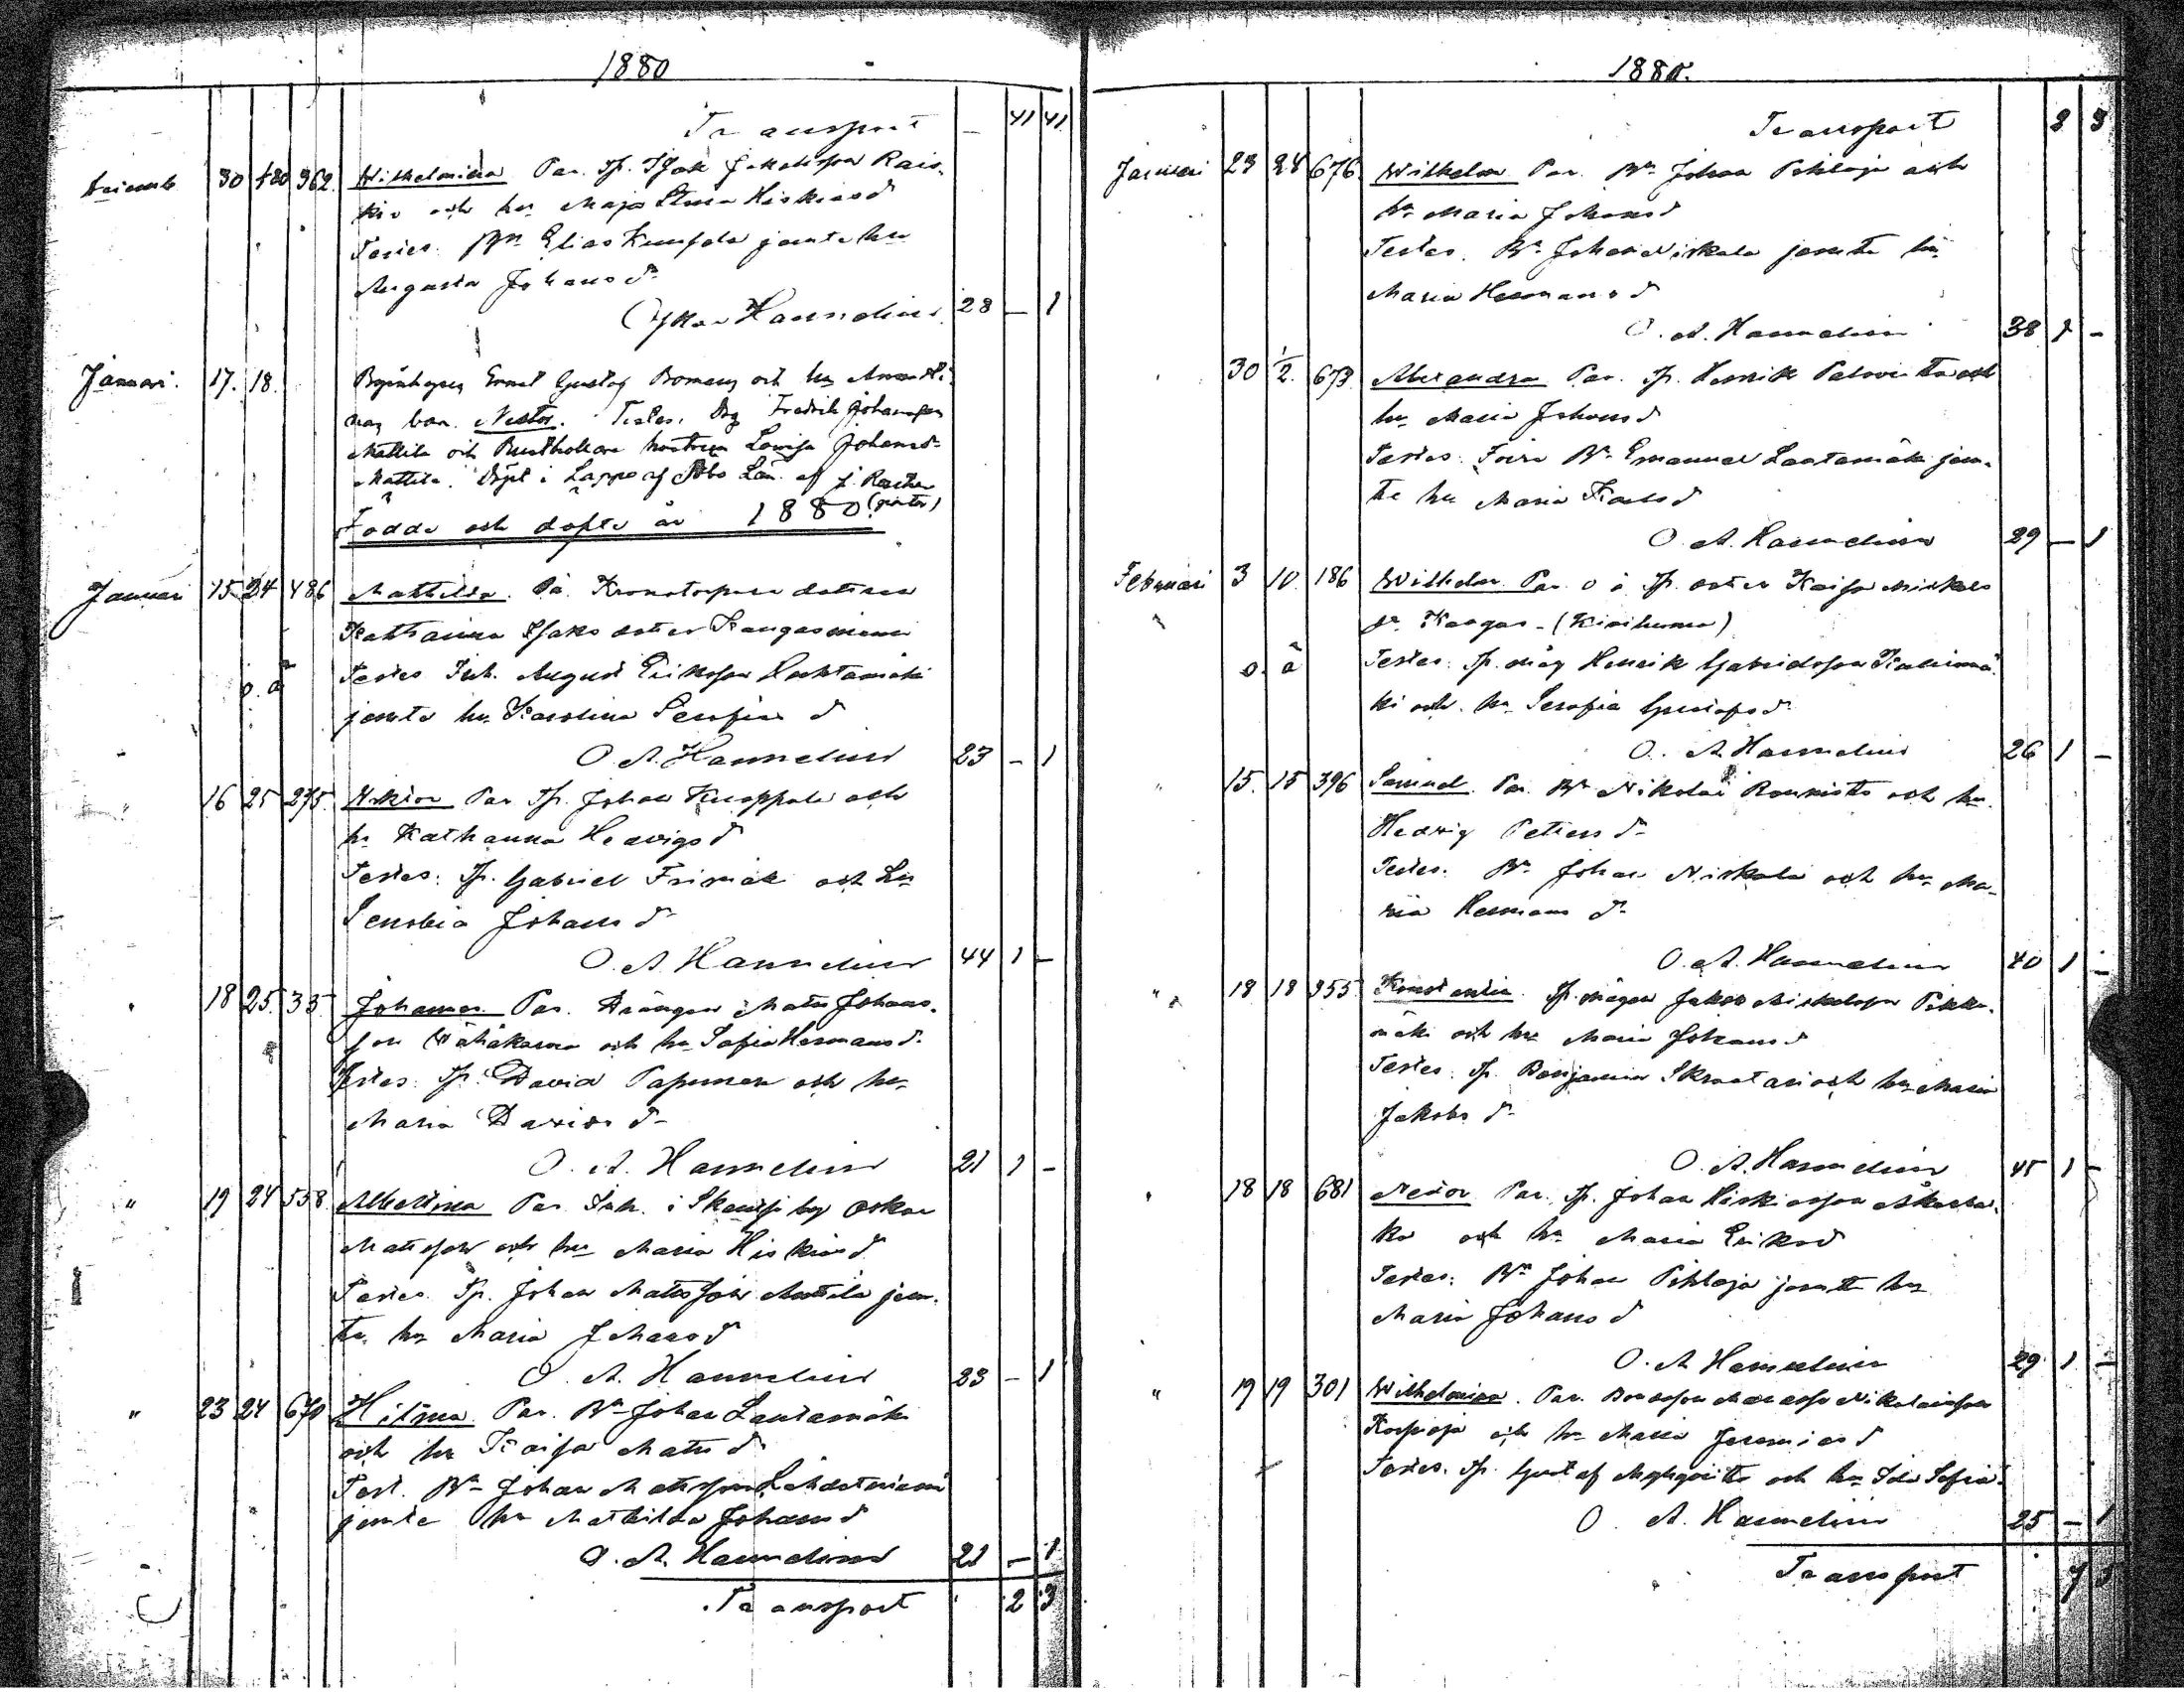 1880
Transport — 41 41
30 120 362 Wilhelmina Par. Tp. Isak Jakobsson Rais-
kio och hu Maja Stina Hiskiasd
Testes. Bn Elias Kumpula jemte hu
Augusta Johansd
Oskar Hannelius 28 — 1
Januari 17. 18. Ernst Gustaf Boman och hu Amanda
barn Nestor. Testes. Drg Fredrik Johansson
Mattila och Rusthollare hustrun Lovisa Johansd
Mattila. Döpt i Lappo af Åbo Län af J.
Födde och döpte år 1880
Januari 15 24 486 Mathilda. Pa. Kronotorpare dottren
Katharina Isaks dotter Kangasniemi
o. ä Testes Inh. August Eriksson Lahtamäki
jemte hu Karolina Serafia d
O. A. Hannelius 23 — 1
" 16 25 275. Viktor Par Tp. Johan Knoppala och
hu Katharina Hedvigsd
Testes: Tp. Gabriel och hu
Senobia Johansd
O. A. Hannelius 44 1 —
" 18 25. 33 Johannes Par. Drängen Matts Johans-
son och hu Sofia Hermansd.
Testes: Tp. David Papunen och hu
Maria Davidsd
O. A. Hannelius 21 1 —
" 19 24 558. Albertina Par Inh. i by Oskar
Mattsson och hu Maria Hiskiasd
Testes. Tp. Johan Mattsson Mattila jem-
te hu Maria Johansd
O. A. Hannelius 23 — 1
" 23 24 670 Hilma. Par. Bn Johan Lautamäki
och hu Kaisa Matts d
Test. Bn Johan Mattsson Lähdeniemi
jemte hu Mathilda Johansd
O. A. Hannelius 21 — 1
Transport 2 3
1880.
Transport 2 3
Januari 23 24 676 Wilhelm Par. Bn Johan Pihlaja och
hu Maria Johansd
Testes. Bn Johan Niskala jemte hu
Maria Hermansd
O. A. Hannelius 38 1 —
" 30 1/2. 673 Alexandra Par. Tp. Henrik Palovita och
hu Maria Johansd
Testes. Bn Emanuel Lautamäki jem-
te hu Maria Karlsd
O. A. Hannelius 29 — 1
Februari 3 10. 186 Wilhelm. Par. o ä Tp. dotter Kaisa Mickels
dr. Kangas (Kivihuma)
o. ä Testes: Tp. måg Henrik Gabrielsson
ki och hu Serafia Gustafsd
O. A. Hannelius 26 1 —
" 15. 15 396 Samuel. Par. Bn Nikolai Rannisto och hu
Hedvig Petters dr
Testes. Bn Johan Niskala och hu Ma-
ria Hermans dr
O. A. Hannelius 40 1 —
" 18 18 355 Konstantin. Tp. mågen Jakob Mickelsson Pikku-
mäki och hu Maria Johansd
Testes. Tp. Benjamin och hu Maria
Jakobs dr
O. A. Hannelius 45 1 —
" 18 18 681 Nestor Par. Tp. Johan Hiskiasson
och hu Maria Eriksd
Testes: Bn Johan Pihlaja jemte hu
Maria Johansd
O. A. Hannelius 29 1 —
" 19 19 301 Wilhelmina. Par. Bondeson Manasse Nikolaisson
och hu Maria Jeremiasd
Testes. Tp. Gustaf och hu Ida Sofia
O. A. Hannelius 25 — 1
Transport 7 5